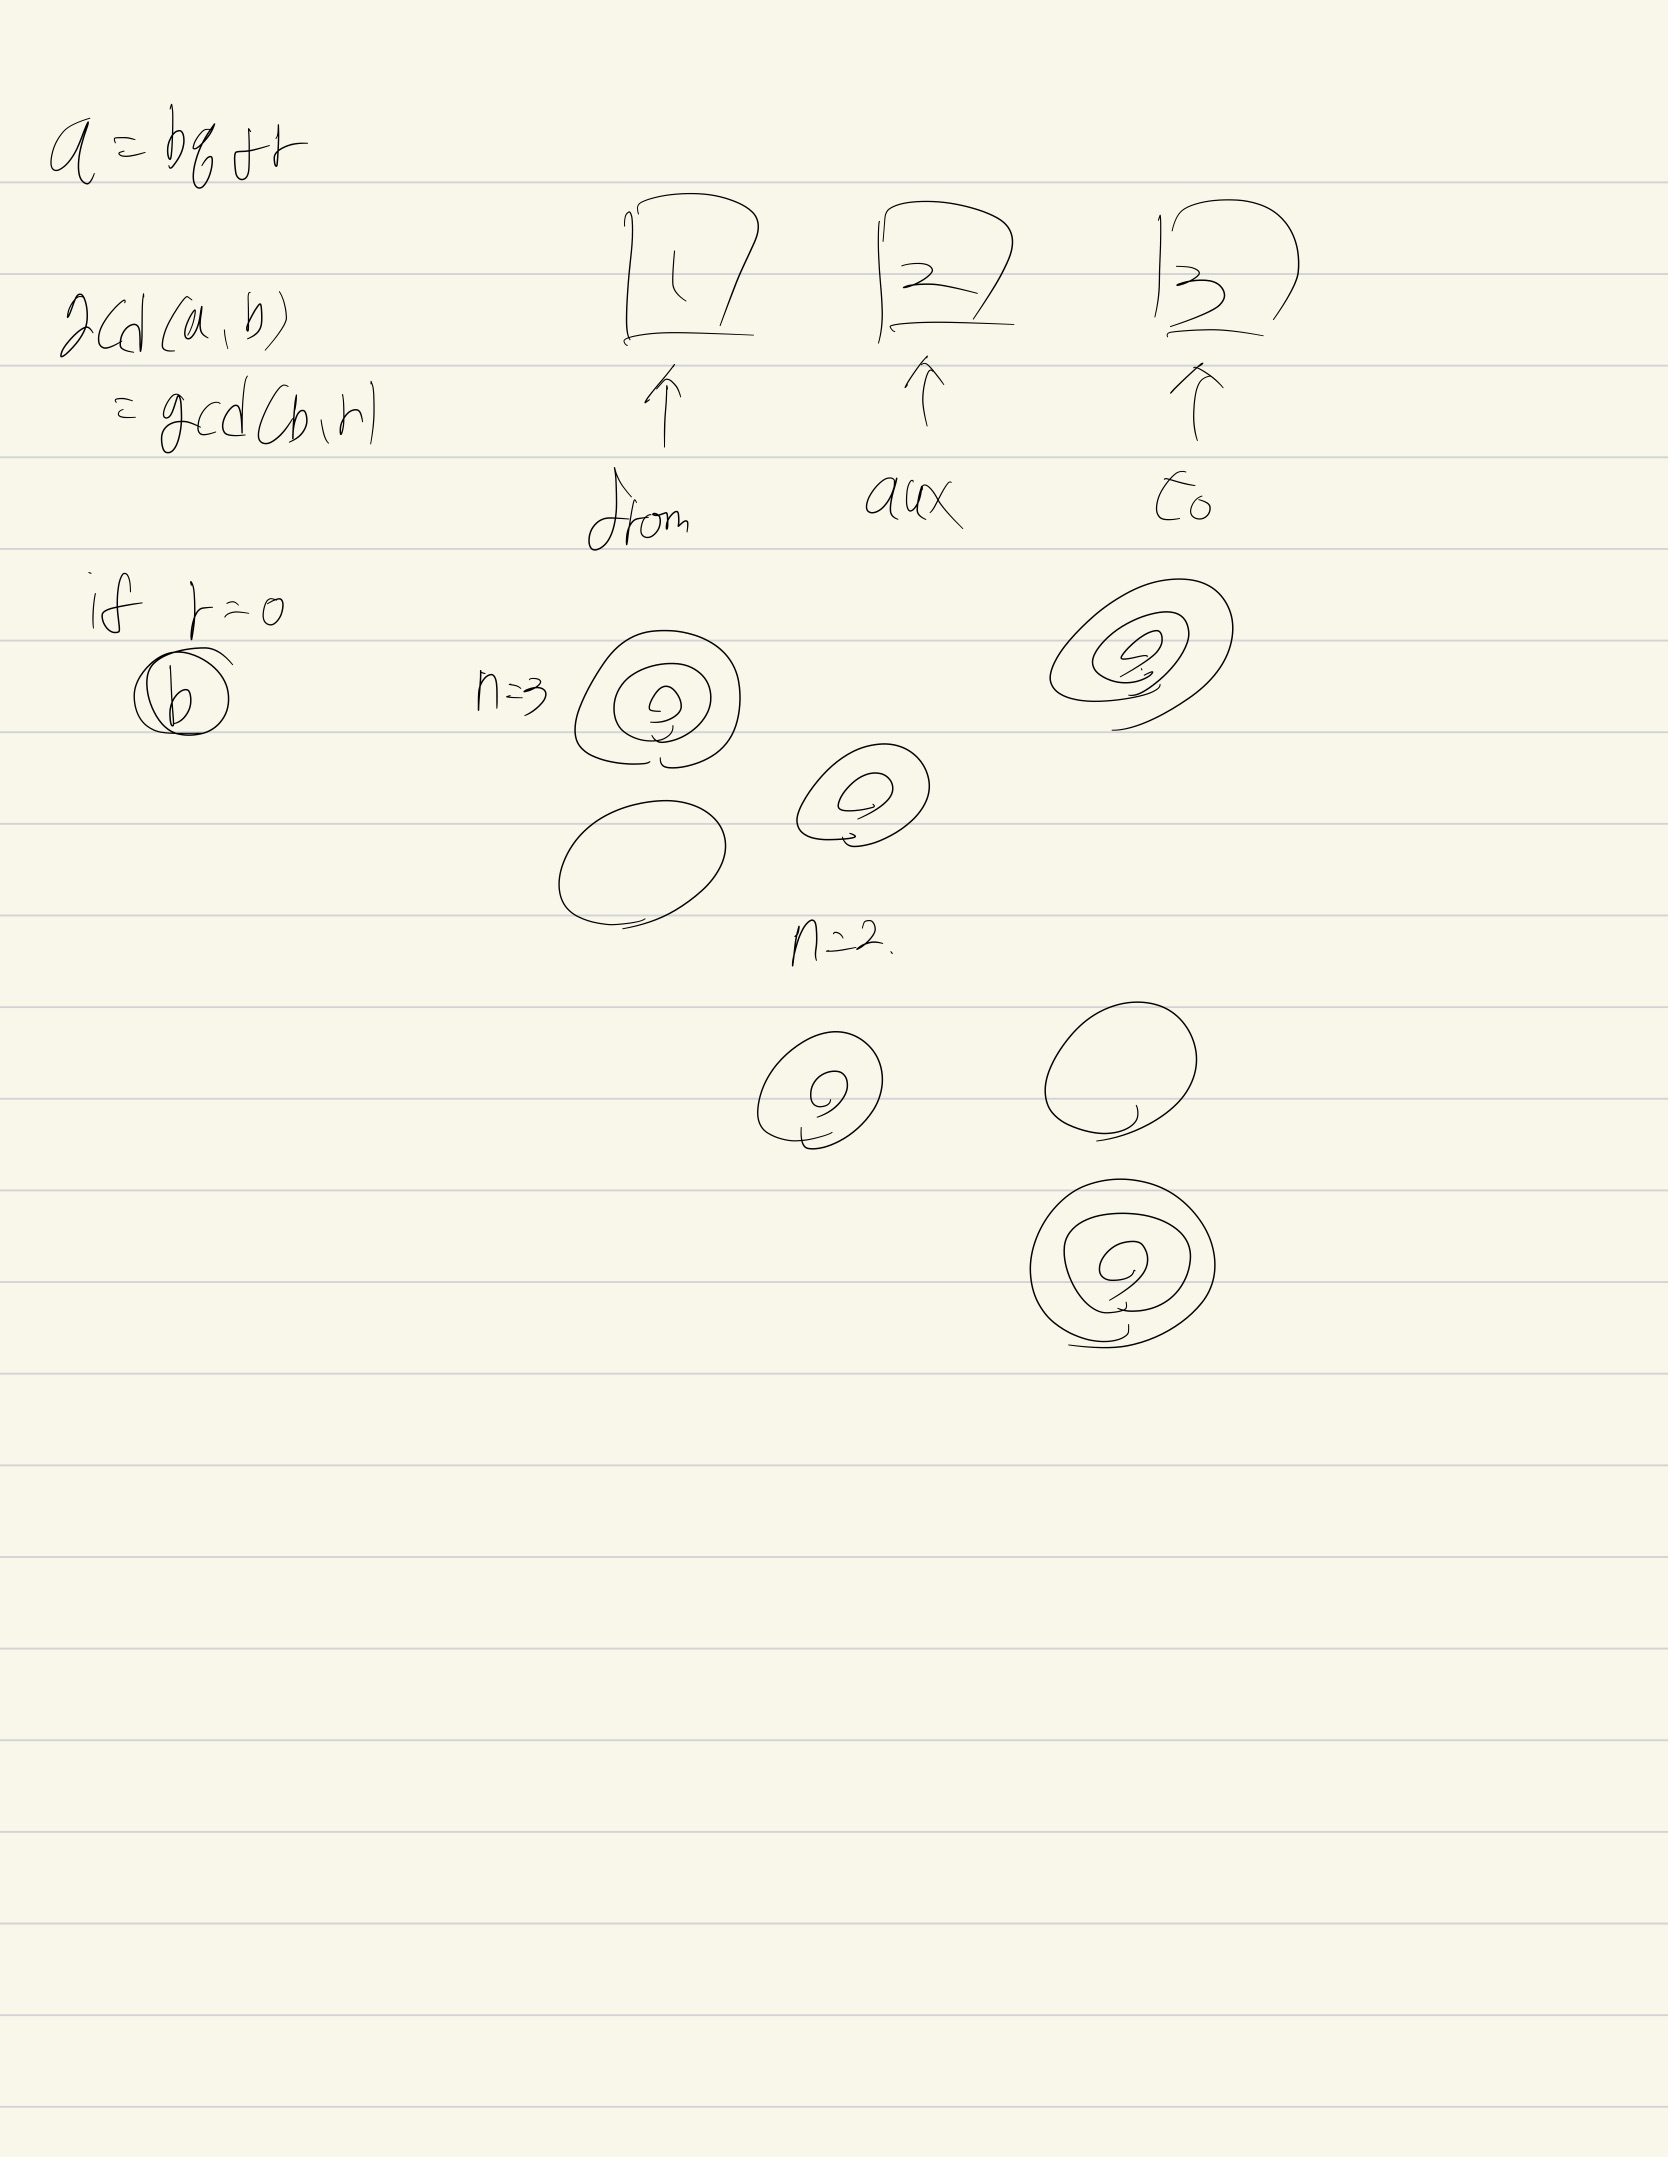 a = bq + r
gcd(a, b)
= gcd(b, r)
if r = 0
b
1 2 3
from aux to
n=3
n=2.